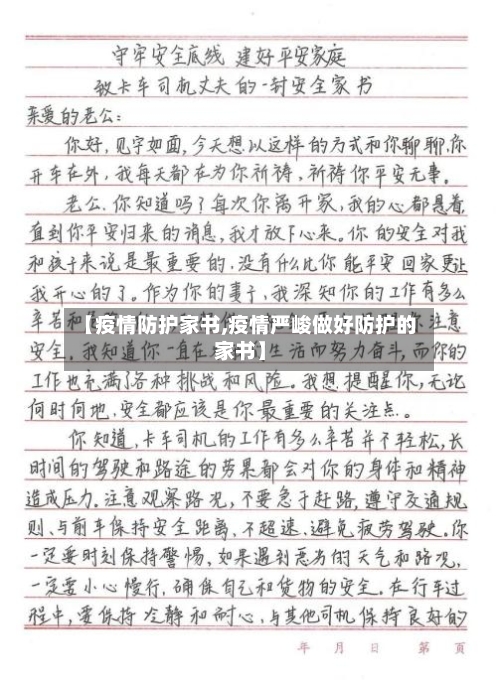 守牢安全底线 建好平安家庭
致卡车司机丈夫的一封安全家书
亲爱的老公:
你好,见字如面,今天想以这样的方式和你聊聊,你
开车在外,我每天都在为你祈祷,祈祷你平安无事。
老公,你知道吗?每次你离开家,我的心都悬着,
直到你平安归来的消息,我才放下心来。你的安全对我
和孩子来说是最重要的,没有什么比你能平安回家更让
我开心的了。作为你的妻子,我深知你的工作有多么
辛苦和 注意
【疫情防护家书,疫情严峻做好防护的
家书】
安全,我知道你一直在 生活而努力奋斗,而你的
工作也充满了各种挑战和风险。我想提醒你,无论
何时何地,安全都应该是你最重要的关注点。
你知道,卡车司机的工作有多么辛苦并不轻松,长
时间的驾驶和路途的劳累都会对你的身体和精神
造成压力。注意观察路况,不要急于赶路,遵守交通规
则、与前车保持安全距离,不超速、避免疲劳驾驶。你
一定要时刻保持警惕,如果遇到恶劣的天气和路况,
一定要小心慢行,确保自己和货物的安全。在行车过
程中,要保持冷静和耐心,与其他司机保持良好的
年 月 日 第 页